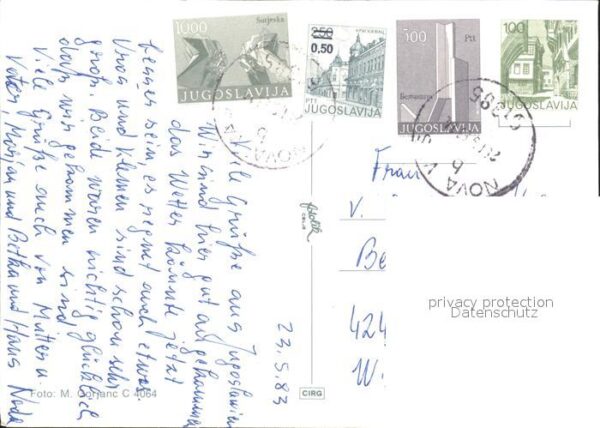 1000
Sutjeska
JUGOSLAVIJA
250
0,50
VRŠAC
PTT
JUGOSLAVIJA
500
Ptt
JUGOSLAVIJA
100
JUGOSLAVIJA
NOVA
NOVA V
23.5.83
Viele Grüße aus Jugoslawien
Wir sind hier gut angekommen
das Wetter könnte jetzt
besser sein es regnet auch etwas.
Vroni und Klemen sind schon sehr
groß. Beide waren richtig glücklich
das wir gekommen sind.
Viele Grüße auch von Mutter u.
Vater, Marjan und Betka und Hans
Frau
V.
Be
424
W.
privacy protection
Datenschutz
Foto: M. Gorjanc C 4064
CIRG